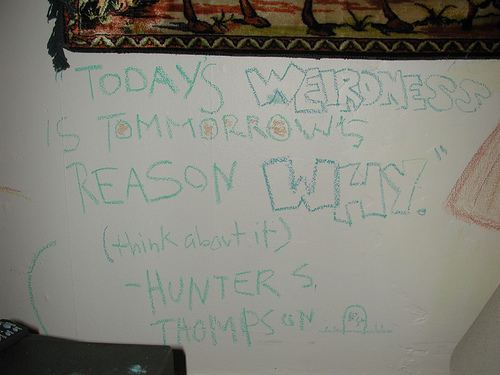 TODAY'S WEIRDNESS
IS TOMMORROW'S
REASON WHY."
(think about it)
-HUNTER S.
THOMPSON